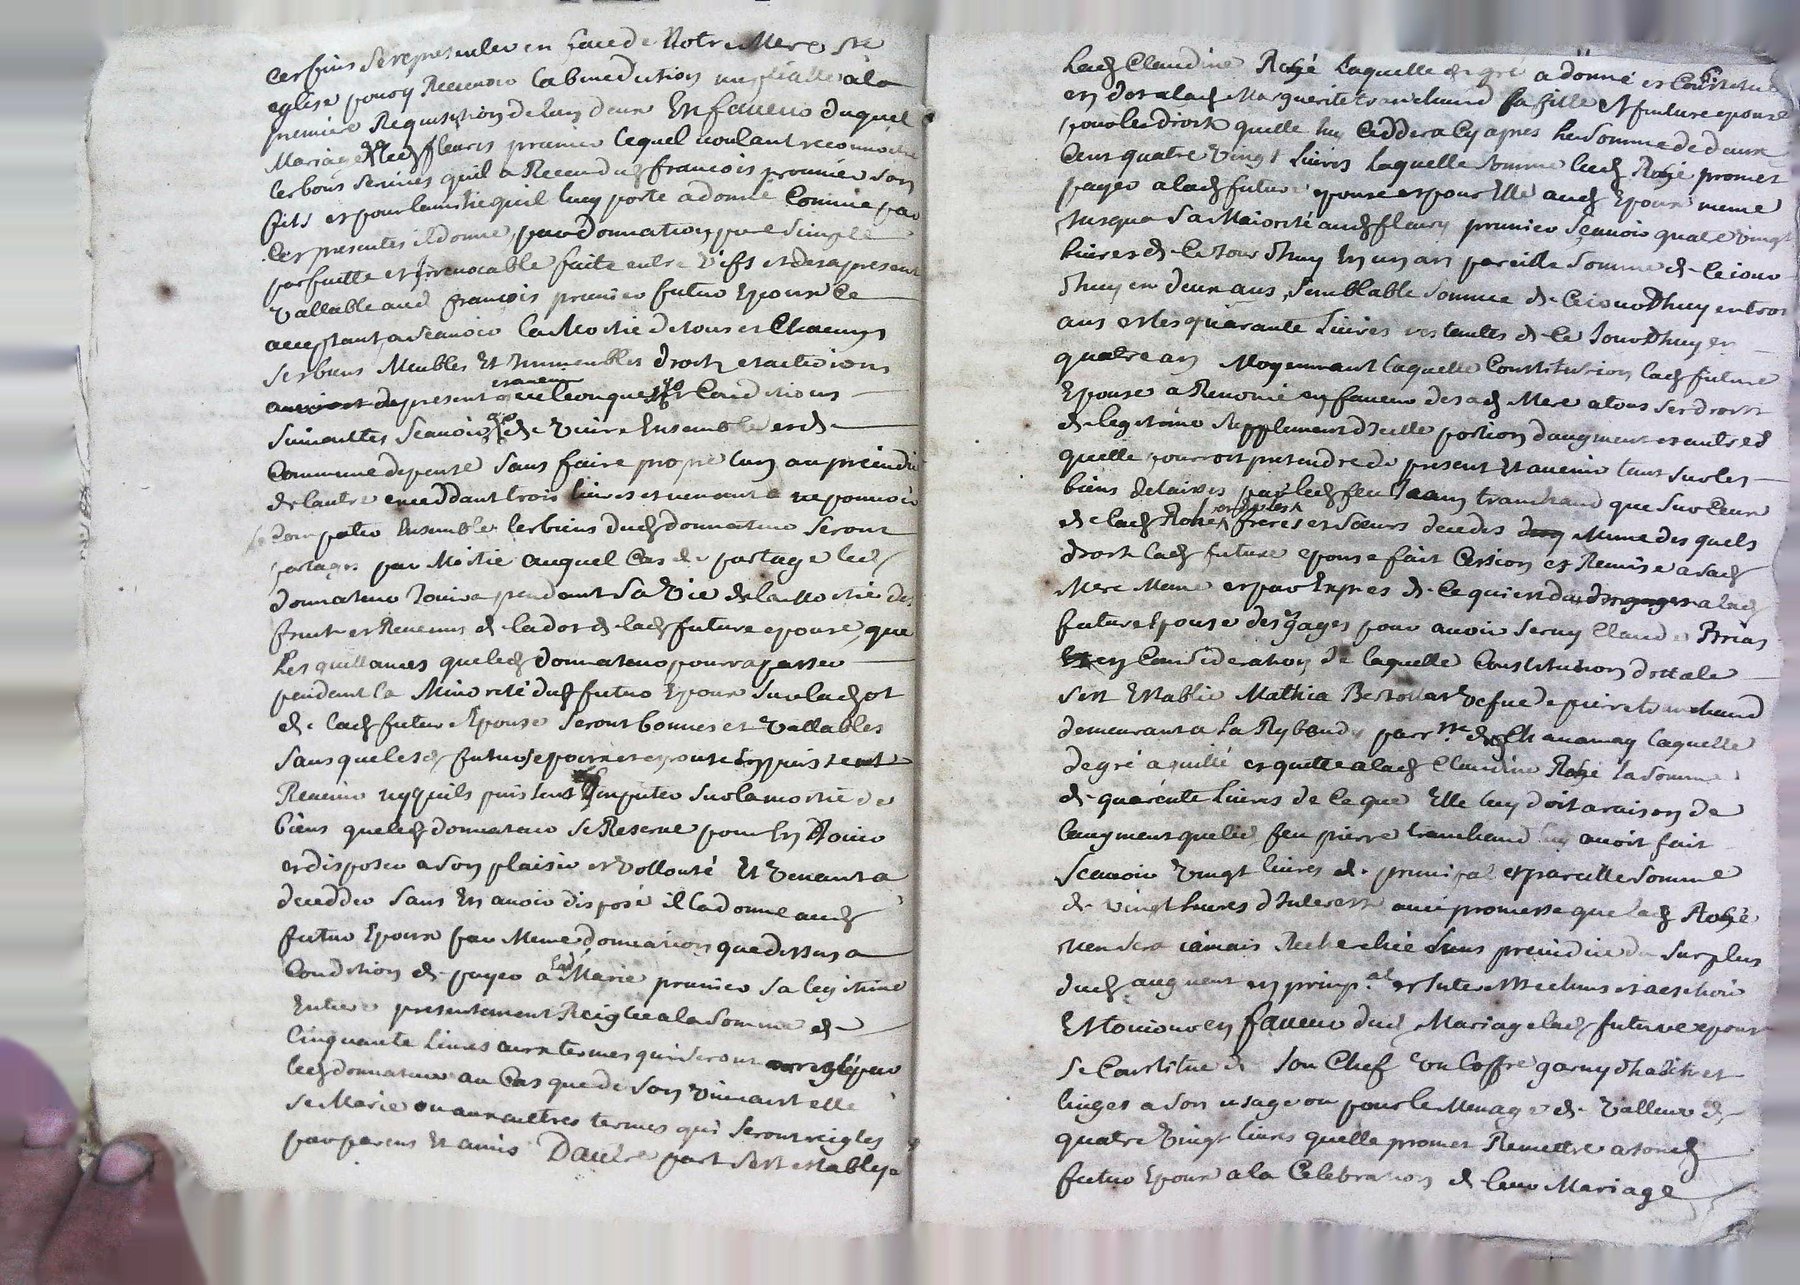 ces fins se representer en face de Notre Mere Ste
eglise pour y Recevoir la benediction nuptialle a la
premiere Requisition de lun deux En faveur duquel
Mariage led fleuris prunier lequel voulant reconnoitre
les bons services quil a Receu dud francois prunier son
fils et pour lamitié quil luy porte a donné Comme par
Ces presentes il donne par donnation pure simple
parfaitte et irrevocable faite entre vifs et des a present
vallable aud françois prunier futur Epoux Ce
acceptant a scavoir la Moitié de tous et Chacuns
ses biens Meubles Et Immeubles droits et actions
de present et avenir quelconques Conditions
suivantes Scavoir de vivre Ensemble et de
Commune depense sans faire propre lun au prejudice
de lautre excedant trois livres et venant a ne pouvoir
Compatir Ensemble les biens dud donnateur Seront
partagés par Moitié auquel Cas de partage led
donnateur Jouira pendant sa vie de la Moitié des
fruits et Revenus de la dot de lad future epouse, que
les quittances que led donnateur pourra passer
pendant la Minorité dud futur Epoux sur la dot
de lad future Epouse seront bonnes et vallables
sans que lesd futurs epoux et epouse sy puissent
Revenir ny quils puissent imputer sur la moitié de
biens que led donnateur se Reserve pour En Jouir
et disposer a son plaisir et vollonté Et Venant a
decedder sans En avoir disposé il la donne aud
futur Epoux par Meme donnation que dessus a
Condition de payer a lad Marie prunier sa legitime
Entiere presentement Reiglée a la somme de
Cinquante livres aux termes qui seront reglé par
led donnateur au Cas que de son vivant elle
se Marie ou aux autres termes qui seront reiglés
par parens Et amis Dautre part sest establye
Lad Claudine Rozé laquelle de gré a donné et Constitué
en dot a lad Marguerite tranchand sa fille Et future epouse
pour les droits quelle luy Ceddera Cy apres la Somme de deux
Cens quatre vingt livres laquelle somme lad Rozé promet
payer a lad future epouse et pour Elle aud Epoux meme
Jusqua sa Majorité aud fleury prunier Scavoir quatre vingt
livres de Ce jour dhuy En un an pareille Somme de Ce jour
dhuy en deux ans, semblable somme de Ce jour Dhuy en trois
ans et les quarante livres restantes de Ce Jour Dhuy en
quatre ans Moyennant laquelle Constitution lad future
Epouse a Renoncé en faveur de sad Mere a tous ses droits
de legitime supplement dicelle portion daugment et autres
quelle pourroit pretendre de present Et avenir tant sur les
biens delaissés par led feu Jean tranchand que sur Ceux
de lad Rozé freres et soeurs decedes Meme des quels
droits lad future epouse fait Cession et Remise a sad
Mere Meme et par Exprés de Ce qui est du a lad
future Epouse des gages pour avoir servy Claude Brias
en Consideration de laquelle Constitution dottale
sest Establie Mathia vefue de pierre tranchand
demeurant a La Rybaude parr.sse de Chavanay laquelle
de gré a quitté et quitte a lad Claudine Rozé la somme
de quarente livres de Ce que Elle luy doit a raison de
laugment que led feu pierre tranchand luy avoit fait
Scavoir vingt livres de principal et pareille somme
de vingt livres dInterest avec promesse que lad Rozé
nen sera jamais Recherchée sans prejudice du surplus
dud augment en princip.al et Interest echus et a eschoir
Et toujours en faveur dud Mariage lad future epouse
se Constitue de son Chef un Coffre garny dhabits et
linges a son usage ou pour le Menage de valleur de
quatre vingt livres quelle promet Remettre a sond
futur Epoux a la Celebration de leur Mariage